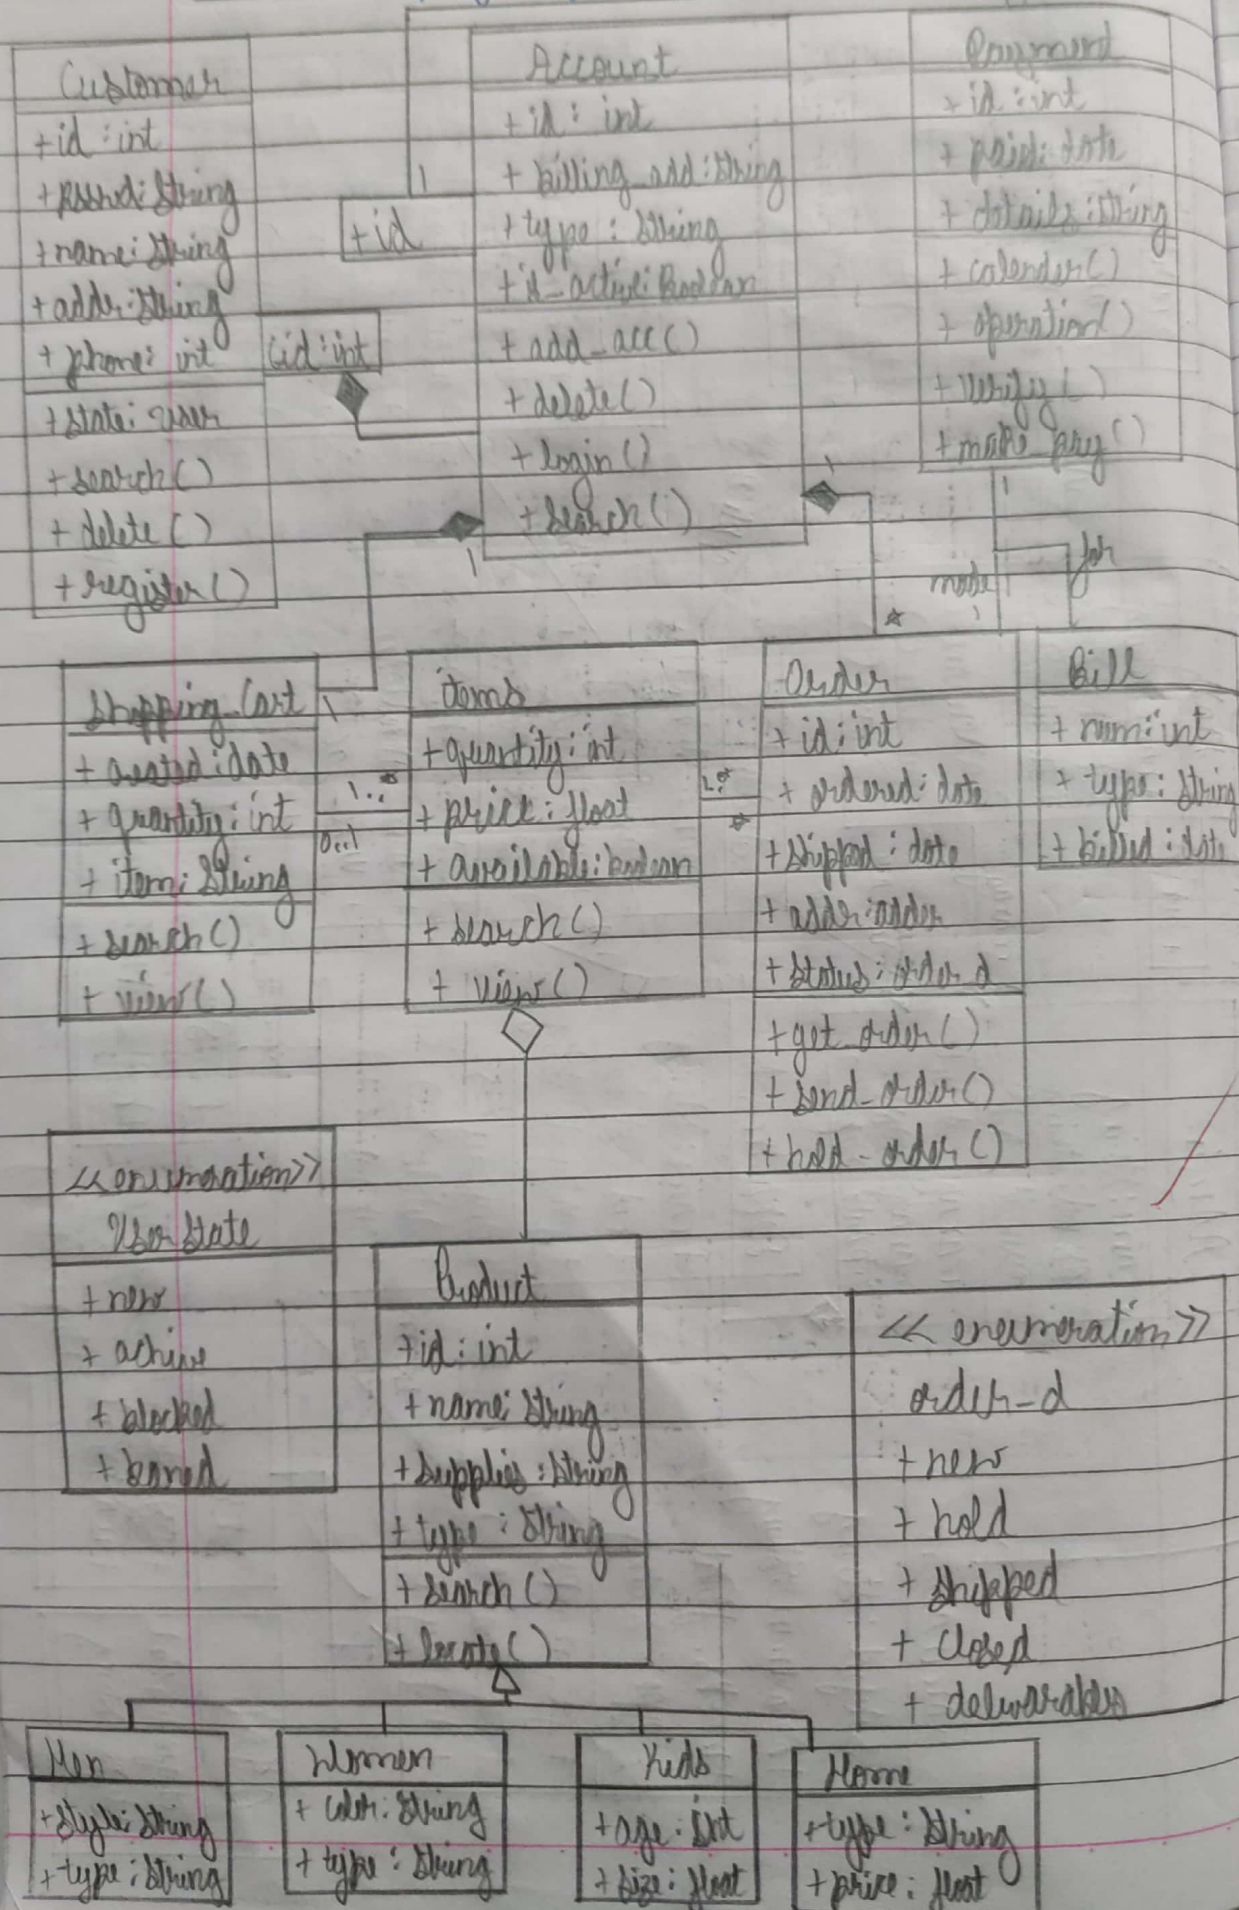 Customer
+id : int
+passwd: String
+name: String
+addr: String
+ phone: int
+state: user
+search()
+ delete()
+register()
1
+id
cid:int
Account
+id : int
+ billing_add:String
+type : String
+is_active:Boolean
+add_acc()
+delete()
+login()
+search()
1
1
*
Payment
+id : int
+ paid: date
+ details : String
+ calender()
+ operation()
+ verify()
+make_pay()
1
mode
for
1
Shopping_Cart
+ created : date
+ quantity : int
+ item: String
+ search()
+ view()
1
1..*
0..1
items
+quantity : int
+ price : float
+ available: boolean
+ search()
+ view()
1..*
*
Order
+ id : int
+ ordered: date
+ shipped : date
+ addr:addr
+ status : order_d
+get_order()
+ send_order()
+ hold_order()
Bill
+ num:int
+ type : String
+ billed : date
<<enumeration>>
User State
+new
+ achive
+ blocked
+ baned
Product
+id: int
+name: String
+supplies : String
+ type : String
+ search()
+ locate()
<< enumeration>>
order_d
+ new
+ hold
+ shipped
+ closed
+ deliwarables
Men
+style: String
+type : String
Women
+ color: String
+ type : String
Kids
+age : int
+ size: float
Home
+type : String
+price: float